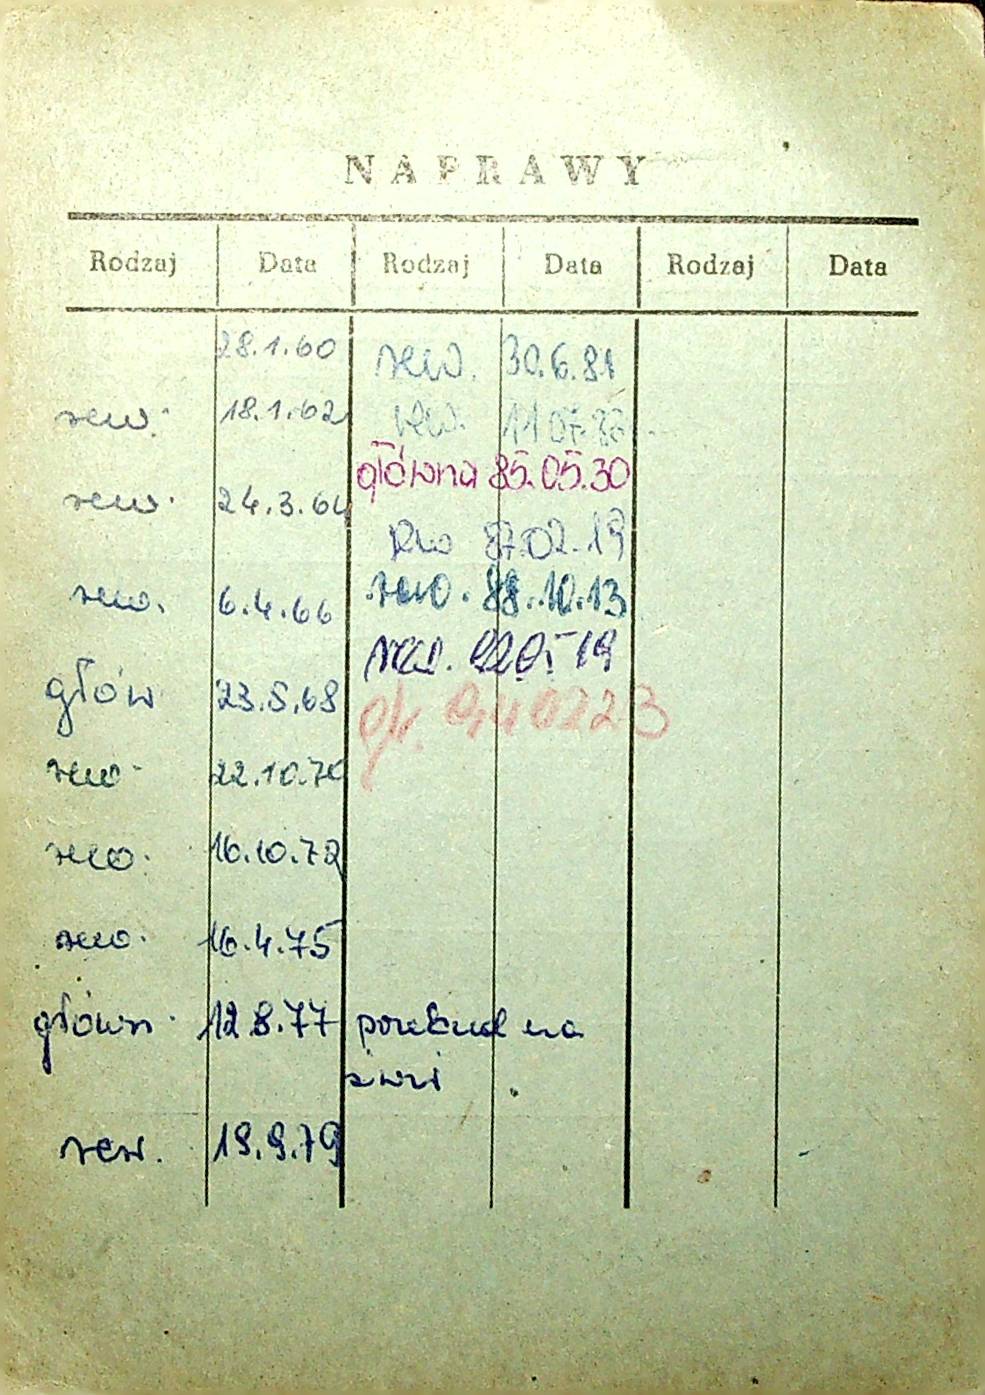 NAPRAWY
Rodzaj Data Rodzaj Data Rodzaj Data
28.1.60
rew. 18.1.62
rew. 24.3.64
rew. 6.4.66
głów 23.5.68
rew. 22.10.70
rew. 16.10.72
rew. 16.4.75
główn. 12.8.77 na
rew. 19.9.79
rew. 30.6.81
rew. 11 07.
główna 85.05.30
Rew 87.02.19
rew. 88.10.13
rew. 19
gł. 940223